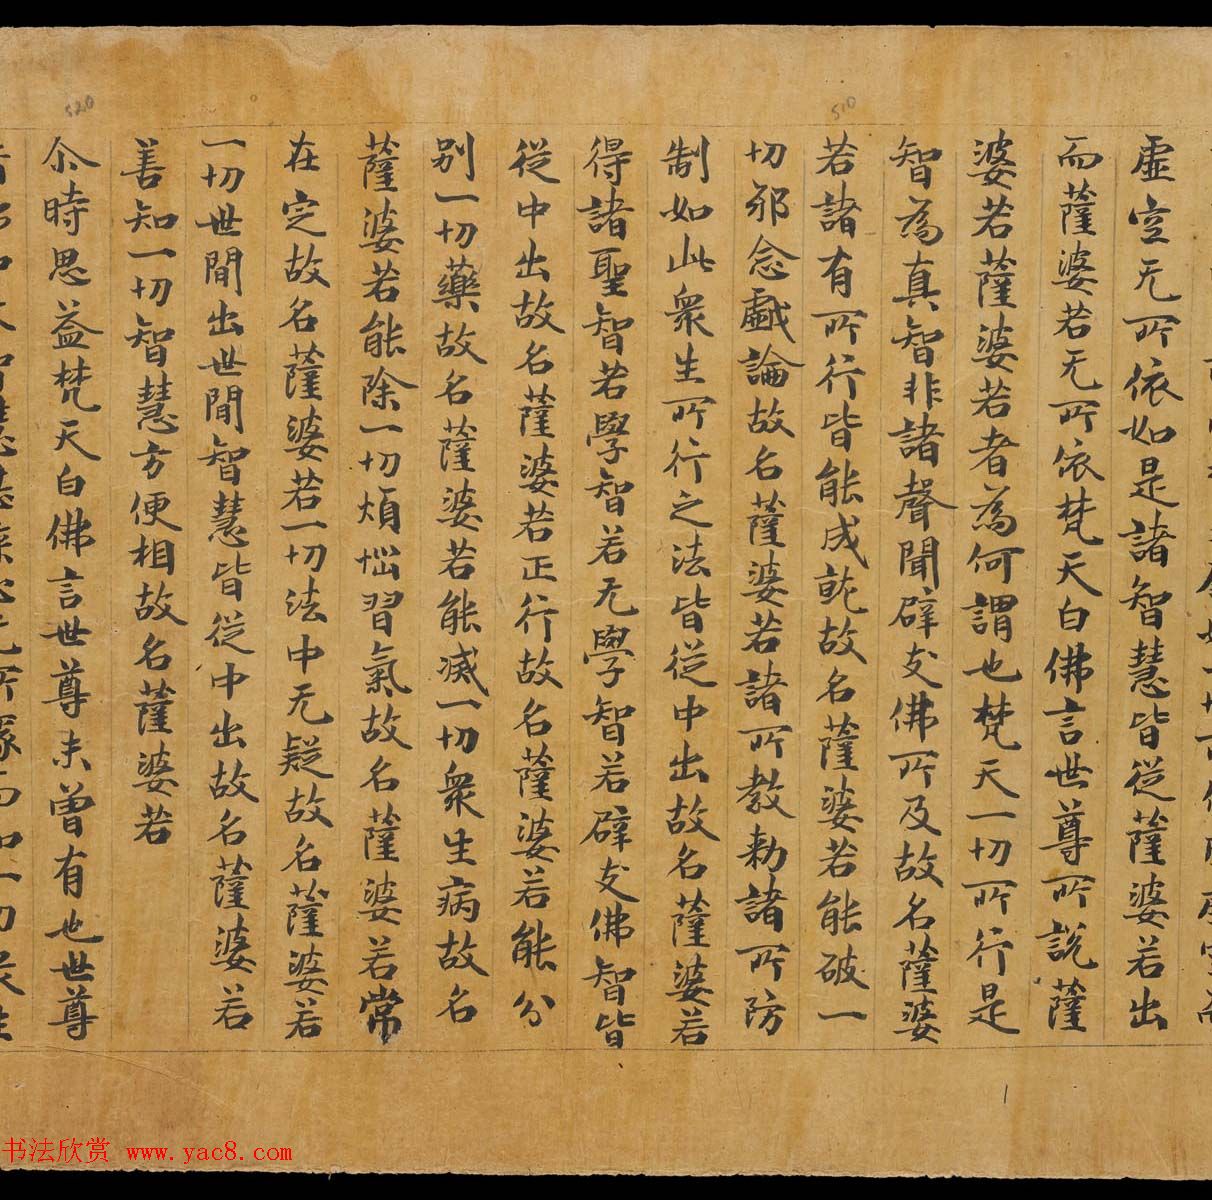 虛空无所依如是諸智慧皆從薩婆若出
而薩婆若无所依梵天白佛言世尊所說薩
婆若薩婆若者為何謂也梵天一切所行是
智為真智非諸聲聞辟支佛所及故名薩婆
若諸有所行皆能成就故名薩婆若能破一
切邪念戲論故名薩婆若諸所教勑諸所防
制如此衆生所行之法皆從中出故名薩婆若
得諸聖智若學智若无學智若辟支佛智皆
從中出故名薩婆若正行故名薩婆若能分
別一切藥故名薩婆若能滅一切衆生病故名
薩婆若能除一切煩惱習氣故名薩婆若常
在定故名薩婆若一切法中无疑故名薩婆若
一切世間出世間智慧皆從中出故名薩婆若
善知一切智慧方便相故名薩婆若
尒時思益梵天白佛言世尊未曾有也世尊
510
520
书法欣赏 www.yac8.com